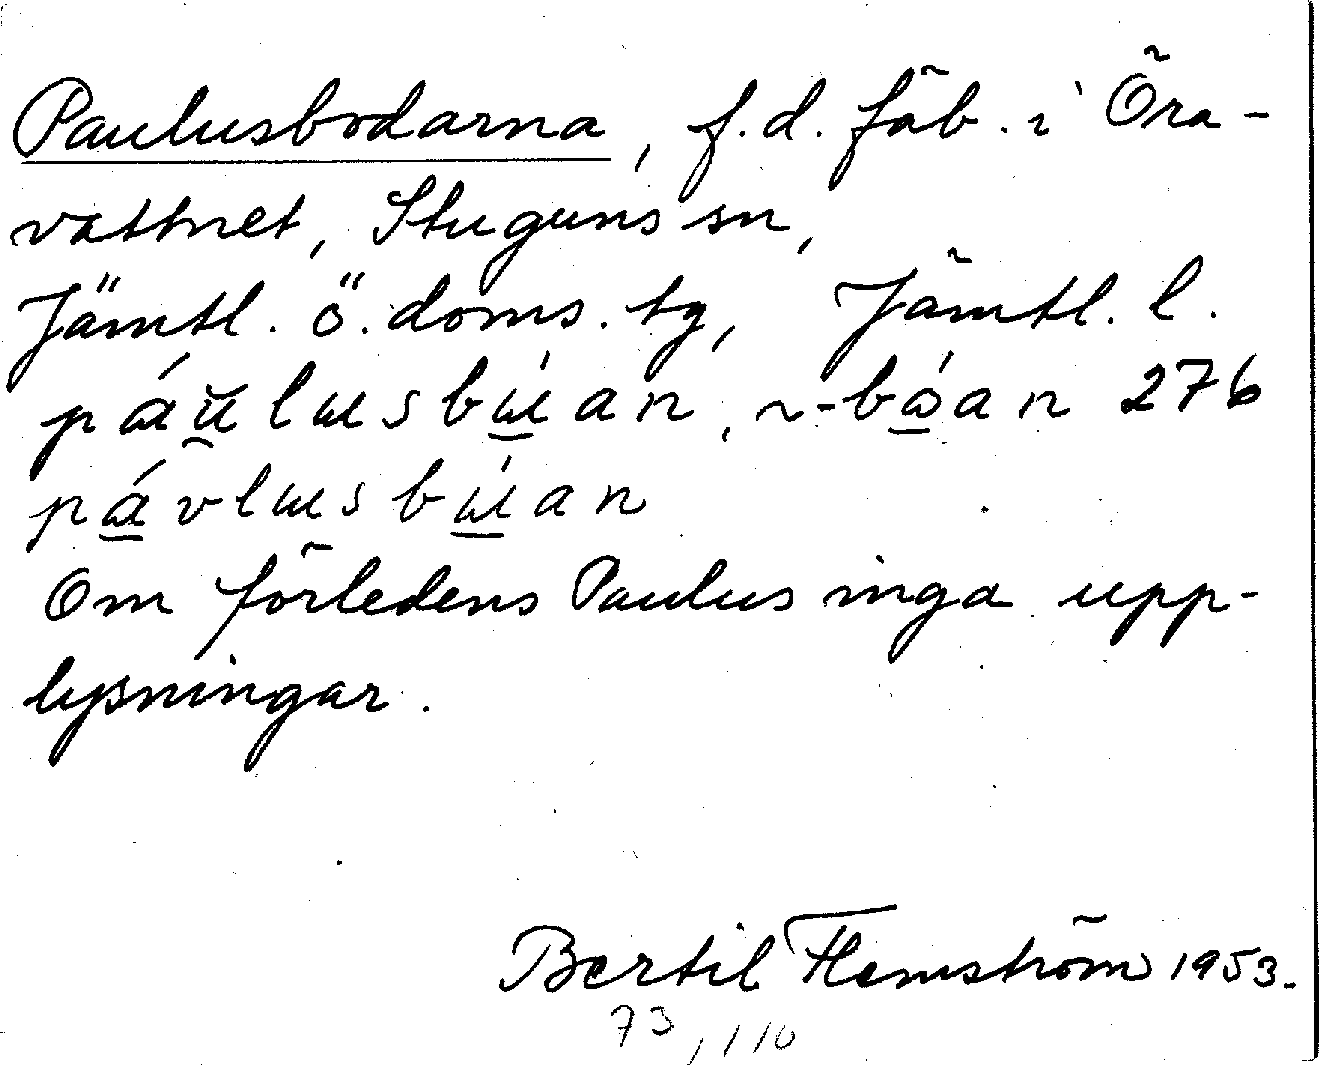 Paulusbodarna, f.d. fäb. i Öra-
vattnet, Stuguns sn,
Jämtl. ö. doms. tg, Jämtl. l.
páu̯lɯsbɯ́an, ~-bώan 276
pávlɯsbɯ́an
Om förledens Paulus inga upp-
lysningar.
Bertil Flemström 1953.
73, 110